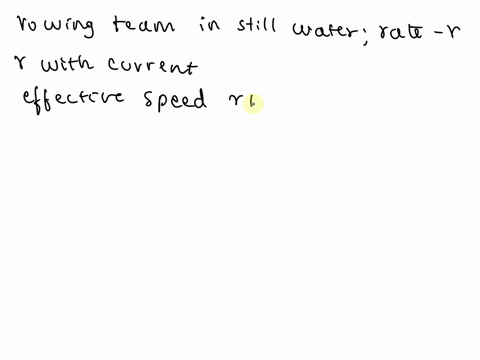 rowing team in still water; rate - r
r with current
effective speed r